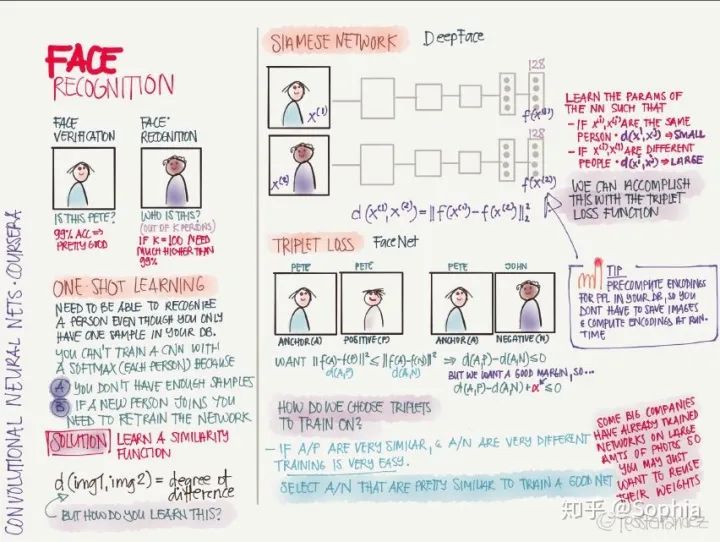 FACE
RECOGNITION
FACE
VERIFICATION
IS THIS PETE?
99% ACC ⇒
PRETTY GOOD
FACE
WHO IS THIS?
(OUT OF K PERSONS)
IF K=100 NEED
MUCH HIGHER THAN
99%
ONE SHOT LEARNING
NEED TO BE ABLE TO RECOGNIZE
A PERSON EVEN THOUGH YOU ONLY
HAVE ONE SAMPLE IN YOUR DB.
YOU CAN'T TRAIN A CNN WITH
A SOFTMAX (EACH PERSON) BECAUSE
A YOU DON'T HAVE ENOUGH SAMPLES
B IF A NEW PERSON JOINS YOU
NEED TO RETRAIN THE NETWORK
SOLUTION LEARN A SIMILARITY
FUNCTION
d(img1, img2) = degree of
difference
BUT HOW DO YOU LEARN THIS?
CONVOLUTIONAL NEURAL NETS · COURSERA
SIAMESE NETWORK DeepFace
128
x⁽¹⁾
f(x⁽¹⁾)
128
x⁽²⁾
f(x⁽²⁾)
d(x⁽¹⁾, x⁽²⁾) = ||f(x⁽¹⁾) - f(x⁽²⁾)||²₂
LEARN THE PARAMS OF
THE NN SUCH THAT
- IF x⁽ⁱ⁾, x⁽ʲ⁾ ARE THE SAME
PERSON · d(xⁱ, xʲ) ⇒ SMALL
- IF x⁽ⁱ⁾, x⁽ʲ⁾ ARE DIFFERENT
PEOPLE · d(xⁱ, xʲ) ⇒ LARGE
WE CAN ACCOMPLISH
THIS WITH THE TRIPLET
LOSS FUNCTION
TRIPLET LOSS FaceNet
PETE PETE PETE JOHN
ANCHOR (A) POSITIVE (P) ANCHOR (A) NEGATIVE (N)
WANT ||f(A)-f(P)||² ≤ ||f(A)-f(N)||² ⇒ d(A,P)-d(A,N) ≤ 0
d(A,P) d(A,N)
BUT WE WANT A GOOD MARGIN, SO...
d(A,P)-d(A,N)+α ≤ 0
TIP
PRECOMPUTE ENCODINGS
FOR PPL IN YOUR DB, SO YOU
DONT HAVE TO SAVE IMAGES
& COMPUTE ENCODINGS AT RUN-
TIME
HOW DO WE CHOOSE TRIPLETS
TO TRAIN ON?
- IF A/P ARE VERY SIMILAR, & A/N ARE VERY DIFFERENT
TRAINING IS VERY EASY.
SELECT A/N THAT ARE PRETTY SIMILAR TO TRAIN A GOOD NET
SOME BIG COMPANIES
HAVE ALREADY TRAINED
NETWORKS ON LARGE
AMTS OF PHOTOS SO
YOU MAY JUST
WANT TO REUSE
THEIR WEIGHTS
知乎 @Sophia